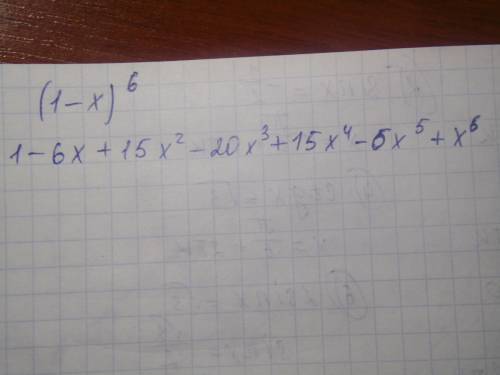 (1-x)⁶
1-6x+15x²-20x³+15x⁴-6x⁵+x⁶